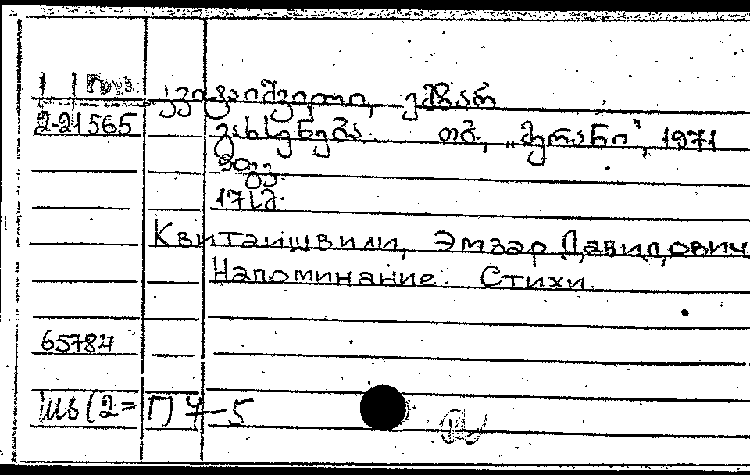 Груз. კვიტაიშვილი, ემზარ
2-21565 გახსენება. თბ., „მერანი", 1971
171გ.
Квитаишвили, Эмзар Давидович
Напоминание. Стихи.
65784
Ш6(2=Г)7-5